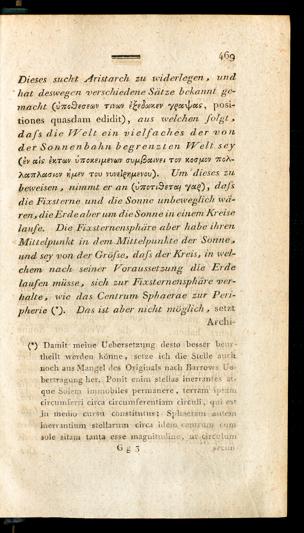 469
Dieses sucht Aristarch zu widerlegen, und
hat deswegen verschiedene Sätze bekannt ge-
macht (ὑποθεσεων τινων ἐξεδωκεν γραψας, posi-
tiones quasdam edidit), aus welchen folgt,
daſs die Welt ein vielfaches der von
der Sonnenbahn begrenzten Welt sey
(ἐν αἰς ἐκ των ὑποκειμενων συμβαινει τον κοσμον πολ-
λαπλασιον ἠμεν του νυνειρημενου). Um dieses zu
beweisen, nimmt er an (ὑποτιθεται γαρ), daſs
die Fixsterne und die Sonne unbeweglich wä-
ren, die Erde aber um die Sonne in einem Kreise
laufe. Die Fixsternensphäre aber habe ihren
Mittelpunkt in dem Mittelpunkte der Sonne,
und sey von der Gröſse, daſs der Kreis, in wel-
chem nach seiner Voraussetzung die Erde
laufen müsse, sich zur Fixsternensphäre ver-
halte, wie das Centrum Sphaerae zur Peri-
pherie (*). Das ist aber nicht möglich, setzt
Archi-
(*) Damit meine Uebersetzung desto besser beur-
theilt werden könne, setze ich die Stelle auch
noch aus Mangel des Originals nach Barrows Ue-
bertragung her. Ponit enim stellas inerrantes at-
que Solem immobiles permanere, terram ipsam
circumferri circa circumferentiam circuli, qui est
in medio cursu constitutus; Sphaeram autem
inerrantium stellarum circa idem centrum cum
sole sitam tanta esse magnitudine, ut circulum
G g 3